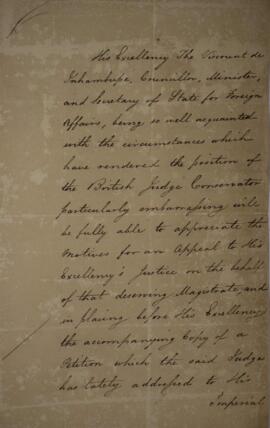 His Excellency The Viscount de
Inhambupe, Councillor, Minister,
and Secretary of State for Foreign
Affairs, being so well acquainted
with the circumstances which
have rendered the position of
the British Judge Conservator
particularly embarrassing will
be fully able to appreciate the
Motives for an Appeal to His
Excellency's Justice on the behalf
of that deserving Magistrate and
in placing before His Excellency
the accompanying Copy of a
Petition which the said Judge
has lately addressed to His
Imperial